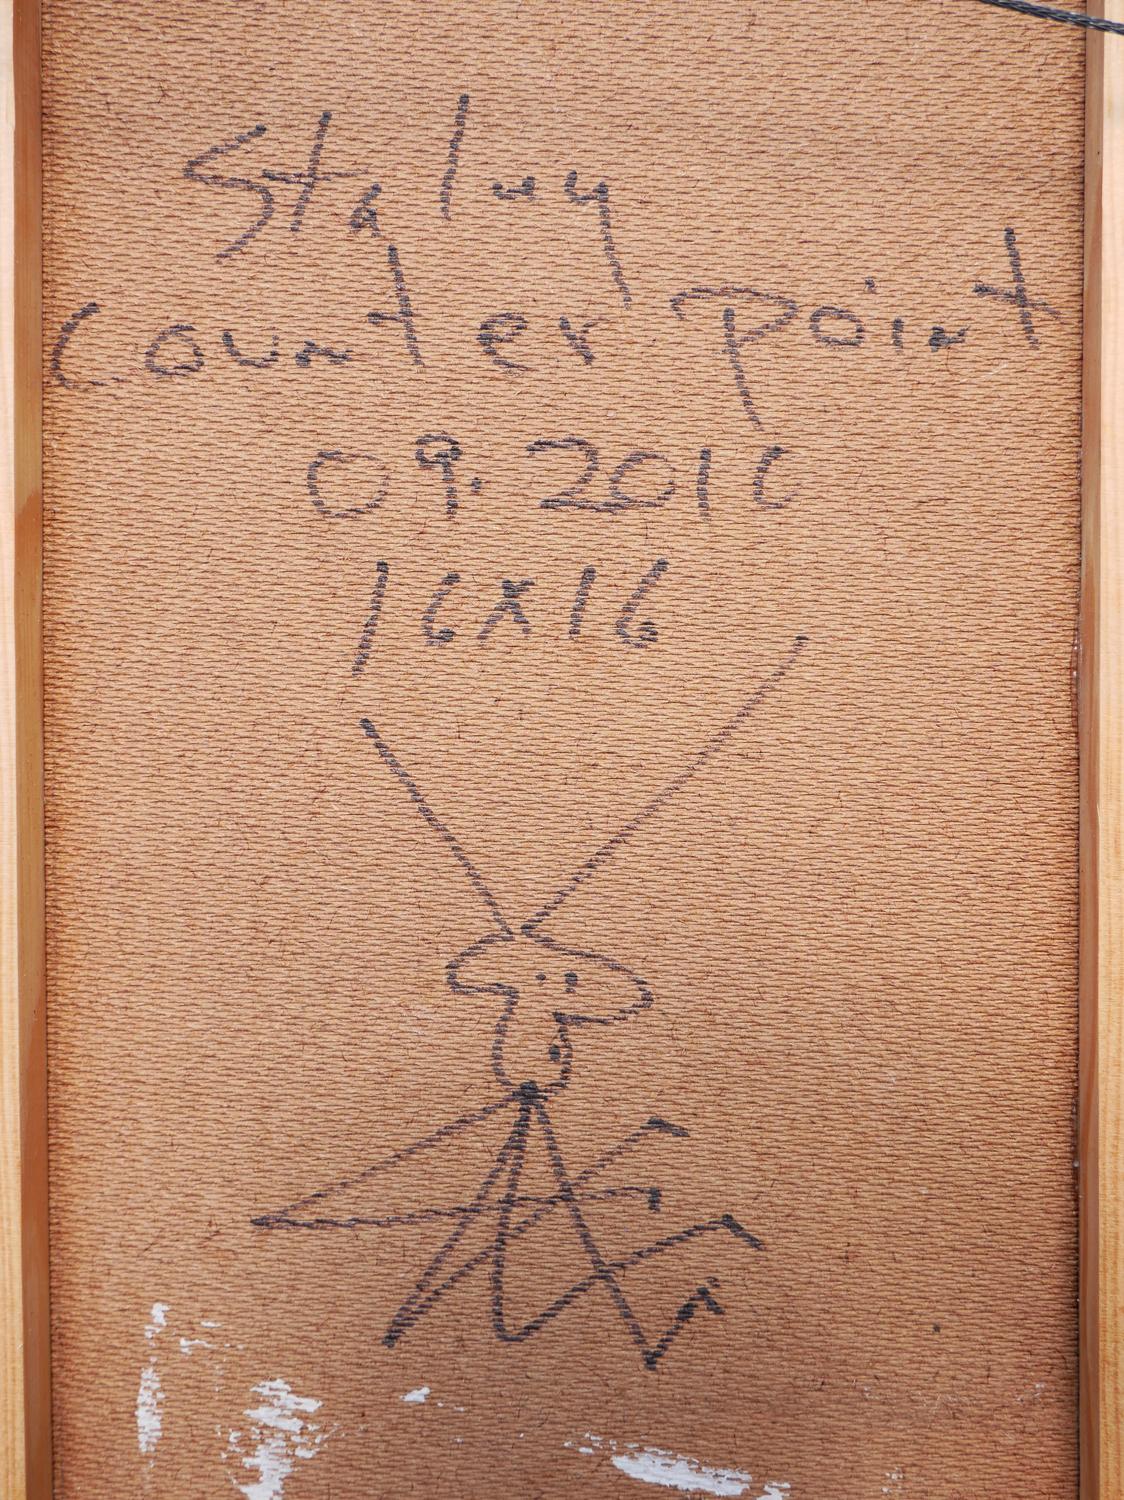 Staluy
Counter Point
09.2010
16x16